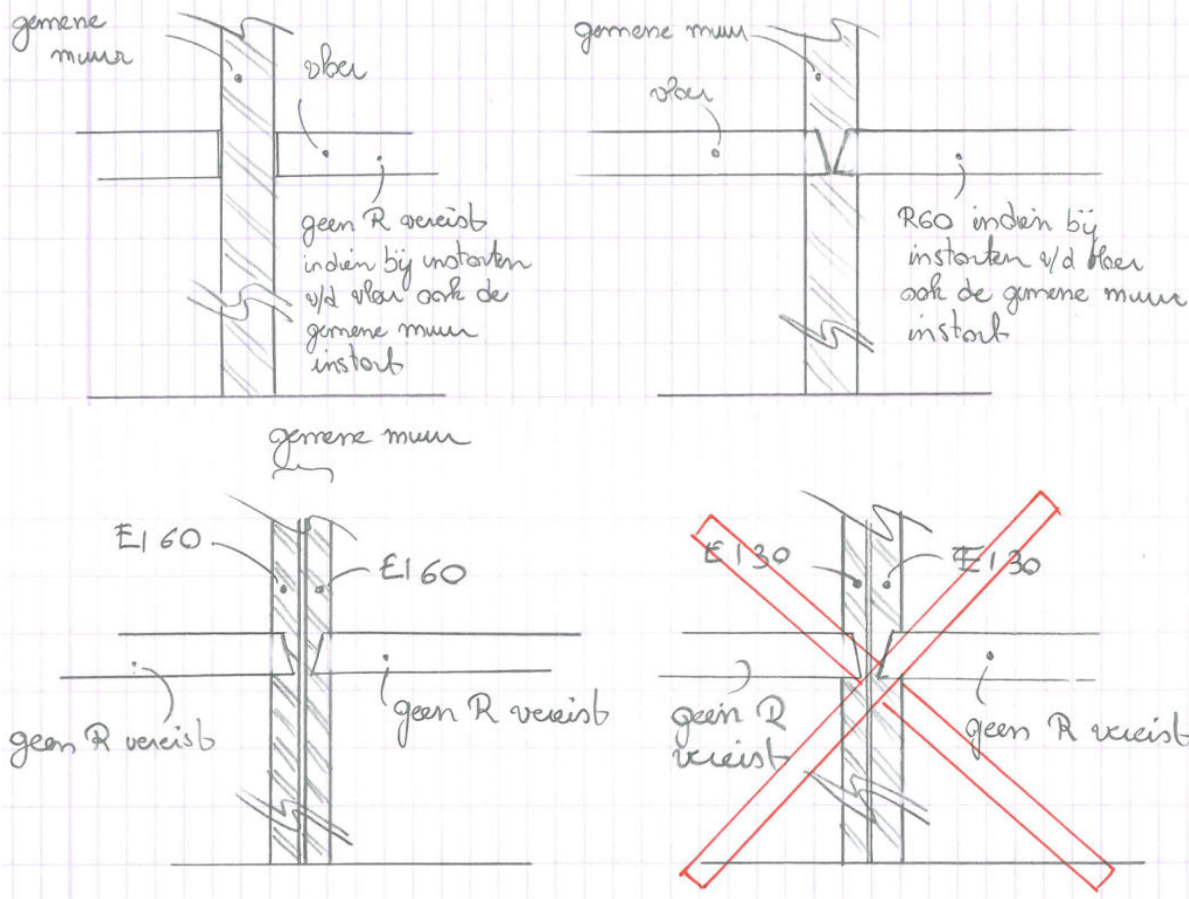 gemene
muur
vloer
geen R vereist
indien bij instorten
v/d vloer ook de
gemene muur
instort
gemene muur
vloer
R60 indien bij
instorten v/d vloer
ook de gemene muur
instort
gemene muur
EI 60
EI 60
geen R vereist
geen R vereist
EI 30
EI 30
geen R
vereist
geen R vereist